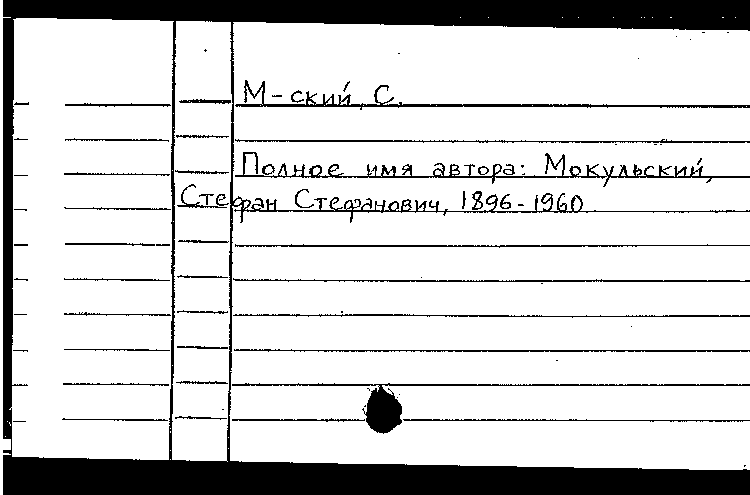 М-ский, С.
Полное имя автора: Мокульский,
Стефан Стефанович, 1896-1960